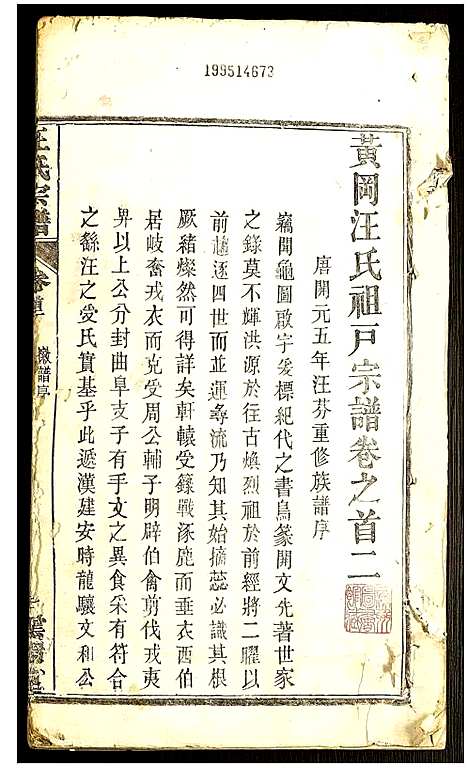 199514673
黃岡汪氏祖戸宗譜卷之首二
唐開元五年汪芬重修族譜序
竊聞龜圖啟宇爰標紀代之書鳥篆開文先著世家
之錄莫不輝洪源於往古煥烈祖於前經將二曜以
前趨逐四世而並運尋流乃知其始摘蕊必識其根
厥緒燦然可得詳矣軒轅受籙戰涿鹿而垂衣西伯
居岐奮戎衣而克受周公輔子明辟伯禽剪伐戎夷
畀以上公分封曲阜支子有手文之異食采有符合
之繇汪之受氏實基乎此遞漢建安時龍驤文和公
汪氏宗譜
卷首
譜序